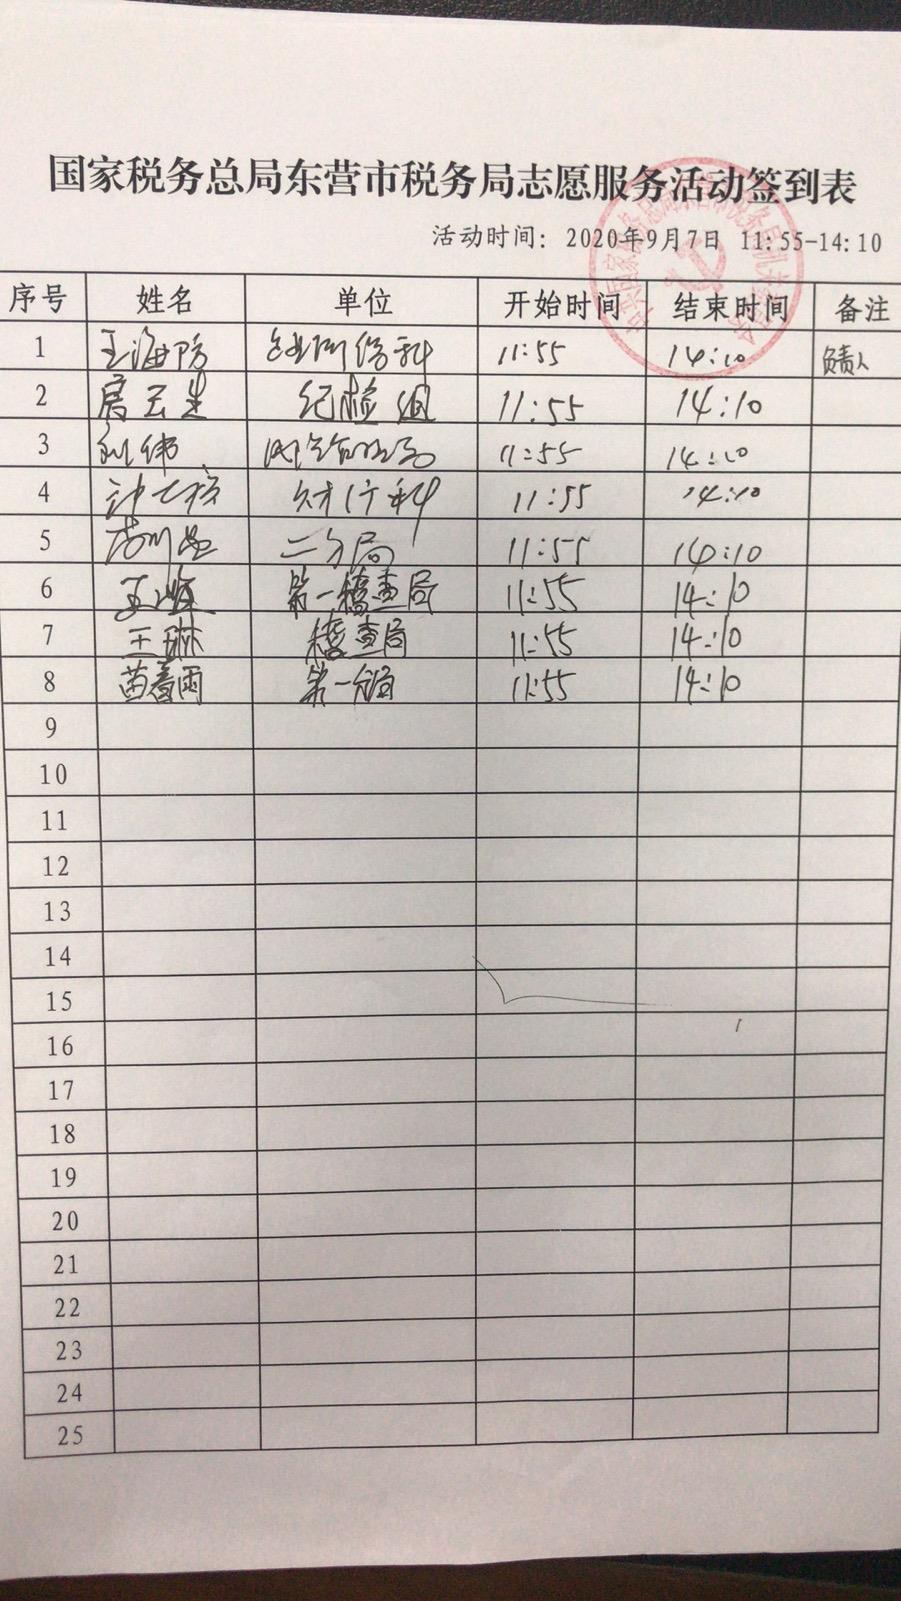 国家税务总局东营市税务局志愿服务活动签到表
活动时间：2020年9月7日 11:55-14:10
序号 姓名 单位 开始时间 结束时间 备注
1 王海防 11:55 14:10 负责人
2 纪检组 11:55 14:10
3 刘伟 11:55 14:10
4 财行科 11:55 14:10
5 二分局 11:55 14:10
6 第一稽查局 11:55 14:10
7 王琳 稽查局 11:55 14:10
8 苗春雨 第一分局 11:55 14:10
9
10
11
12
13
14
15
16
17
18
19
20
21
22
23
24
25